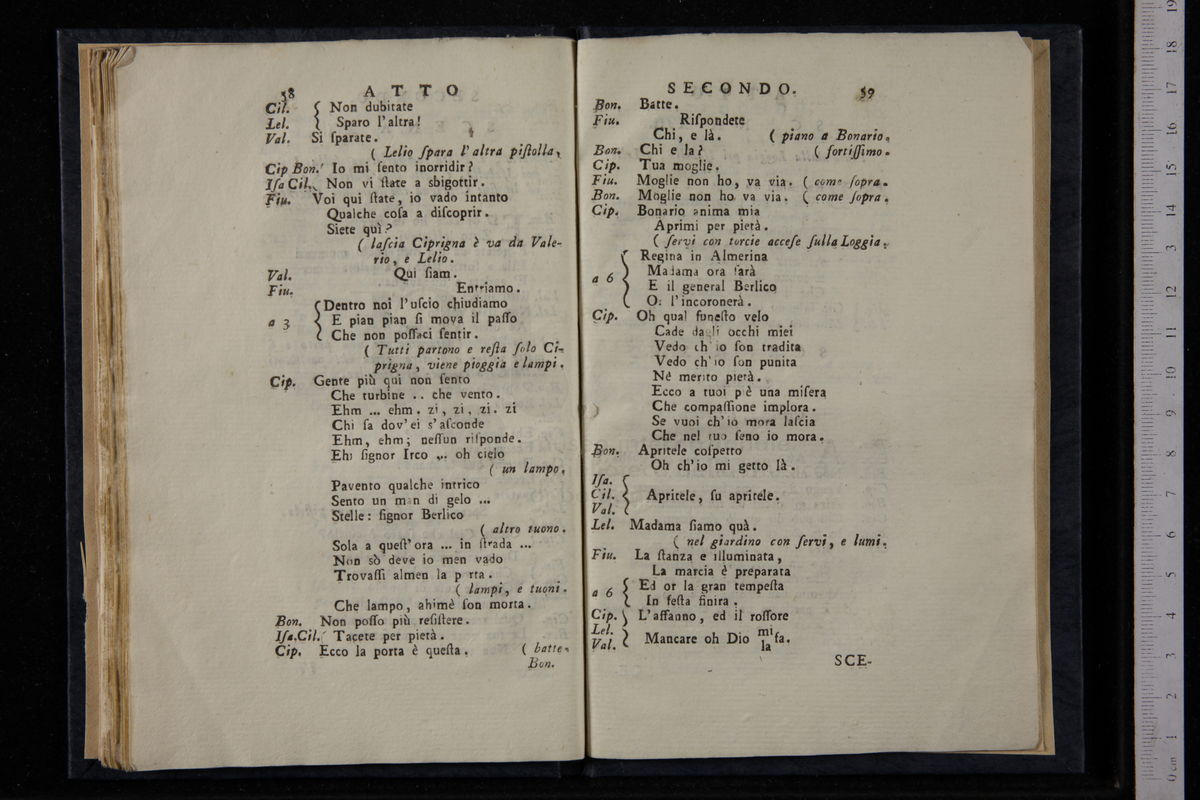 38 ATTO
Cil. { Non dubitate
Lel. { Sparo l'altra!
Val. Si ſparate.
( Lelio ſpara l'altra piſtolla,
Cip Bon. Io mi ſento inorridir?
Iſa Cil. Non vi ſtate a sbigottir.
Fiu. Voi qui ſtate, io vado intanto
Qualche coſa a diſcoprir.
Siete quì?
( laſcia Ciprigna è va da Vale-
rio, e Lelio.
Val. Qui ſiam.
Fiu. Entriamo.
Dentro noi l'uſcio chiudiamo
a 3 { E pian pian ſi mova il paſſo
Che non poſſaci ſentir.
( Tutti partono e reſta ſolo Ci-
prigna, viene pioggia e lampi.
Cip. Gente più qui non ſento
Che turbine .. che vento.
Ehm ... ehm. zi, zi, zi. zi
Chi ſa dov'ei s'aſconde
Ehm, ehm; neſſun riſponde.
Ehi ſignor Irco ... oh cielo
( un lampo,
Pavento qualche intrico
Sento un man di gelo ...
Stelle: ſignor Berlico
( altro tuono.
Sola a queſt'ora ... in ſtrada ...
Non sò deve io men vado
Trovaſſi almen la p rta.
( lampi, e tuoni.
Che lampo, ahimè ſon morta.
Bon. Non poſſo più reſiſtere.
Iſa.Cil. Tacete per pietà.
Cip. Ecco la porta è queſta. ( batte,
Bon.
SECONDO. 39
Bon. Batte.
Fiu. Riſpondete
Chi, e là. ( piano a Bonario,
Bon. Chi e la? ( fortiſſimo.
Cip. Tua moglie,
Fiu. Moglie non ho, va via. ( come ſopra.
Bon. Moglie non ho va via. ( come ſopra.
Cip. Bonario anima mia
Aprimi per pietà.
( ſervi con torcie acceſe ſulla Loggia,
Regina in Almerina
a 6 { Madama ora ſarà
E il general Berlico
Or l'incoronerà.
Cip. Oh qual funeſto velo
Cade dagli occhi miei
Vedo ch'io ſon tradita
Vedo ch'io ſon punita
Nè merito pietà.
Ecco a tuoi piè una miſera
Che compaſſione implora.
Se vuoi ch'io mora laſcia
Che nel tuo ſeno io mora.
Bon. Apritele coſpetto
Oh ch'io mi getto là.
Iſa.
Cil. { Apritele, ſu apritele.
Val.
Lel. Madama ſiamo quà.
( nel giardino con ſervi, e lumi.
Fiu. La ſtanza e illuminata,
La marcia è preparata
a 6 { Ed or la gran tempeſta
In feſta finira.
Cip. } L'affanno, ed il roſſore
Lel. } Mancare oh Dio mi fa.
Val. la
SCE-
0 cm 1 2 3 4 5 6 7 8 9 10 11 12 13 14 15 16 17 18 19